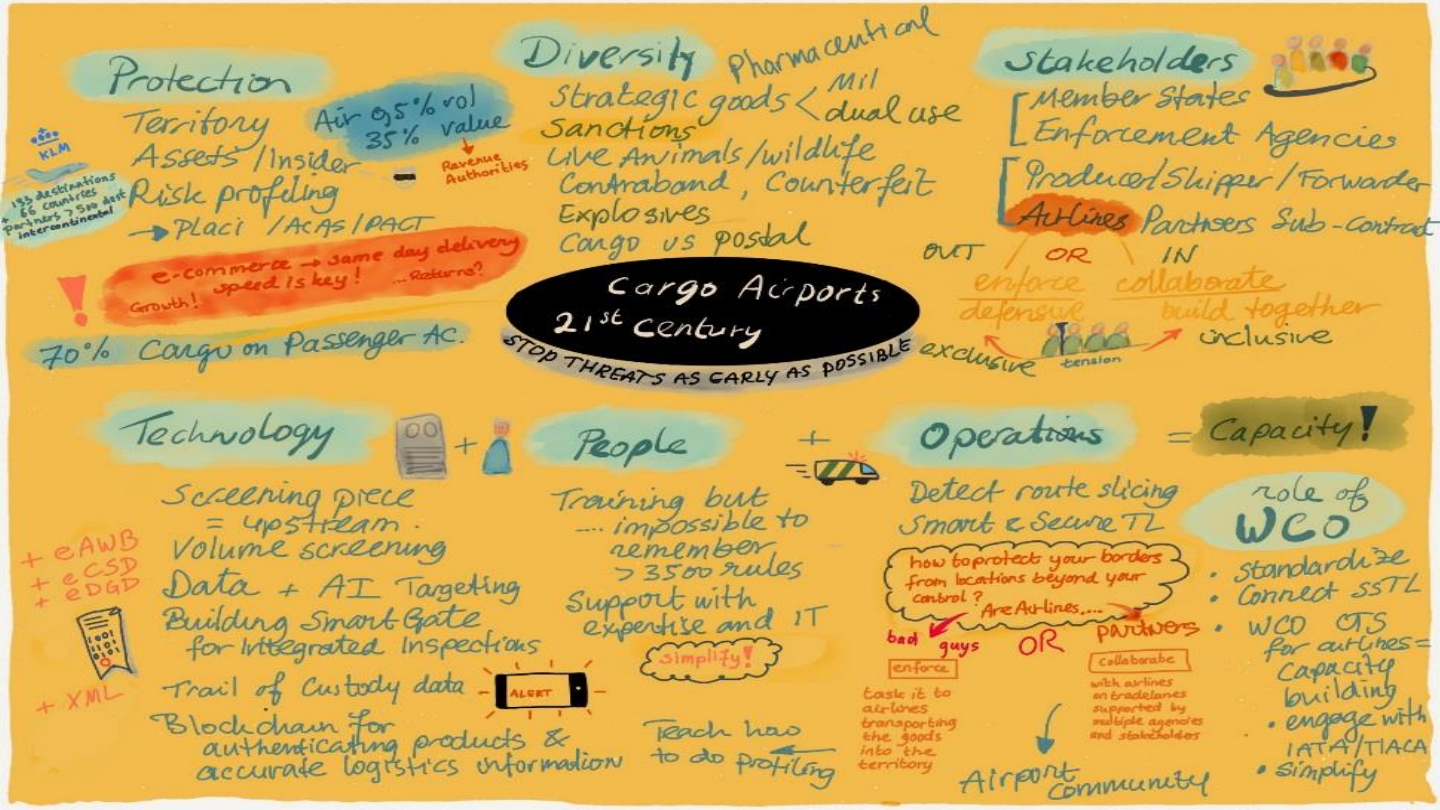 Protection
Air 95% vol
35% value
Revenue
Authorities
Territory
Assets / Insider
Risk profiling
→ Placi / ACAS / PACT
KLM
+ 133 destinations
+ 66 countries
partners > 500 dest
intercontinental
!
e-commerce → same day delivery
speed is key!
Growth!
...Returns?
70% Cargo on Passenger AC.
Diversity
Pharmaceutical
Strategic goods < Mil
dual use
Sanctions
Live Animals/wildlife
Contraband, Counterfeit
Explosives
Cargo vs postal
Stakeholders
Member States
Enforcement Agencies
Producer/Shipper/Forwarder
Airlines Partners Sub-contract
OUT OR IN
enforce collaborate
defensive build together
exclusive tension inclusive
Cargo Airports
21st Century
STOP THREATS AS EARLY AS POSSIBLE
Technology + People + Operations = Capacity!
Screening piece
= upstream.
Volume screening
Data + AI Targeting
Building Smart Gate
for Integrated Inspections
Trail of Custody data
ALERT
Blockchain for
authenticating products &
accurate logistics information
+ eAWB
+ eCSD
+ eDGD
+ XML
Training but
... impossible to
remember
> 3500 rules
Support with
expertise and IT
simplify!
Teach how
to do profiling
Detect route slicing
Smart & Secure TL
how to protect your borders
from locations beyond your
control?
Are Airlines....
bad guys OR partners
enforce
task it to
airlines
transporting
the goods
into the
territory
Collaborate
with airlines
on tradelanes
supported by
multiple agencies
and stakeholders
Airport
Community
role of
WCO
• Standardize
• Connect SSTL
• WCO CTS
for airlines =
capacity
building
• engage with
IATA/TIACA
• simplify